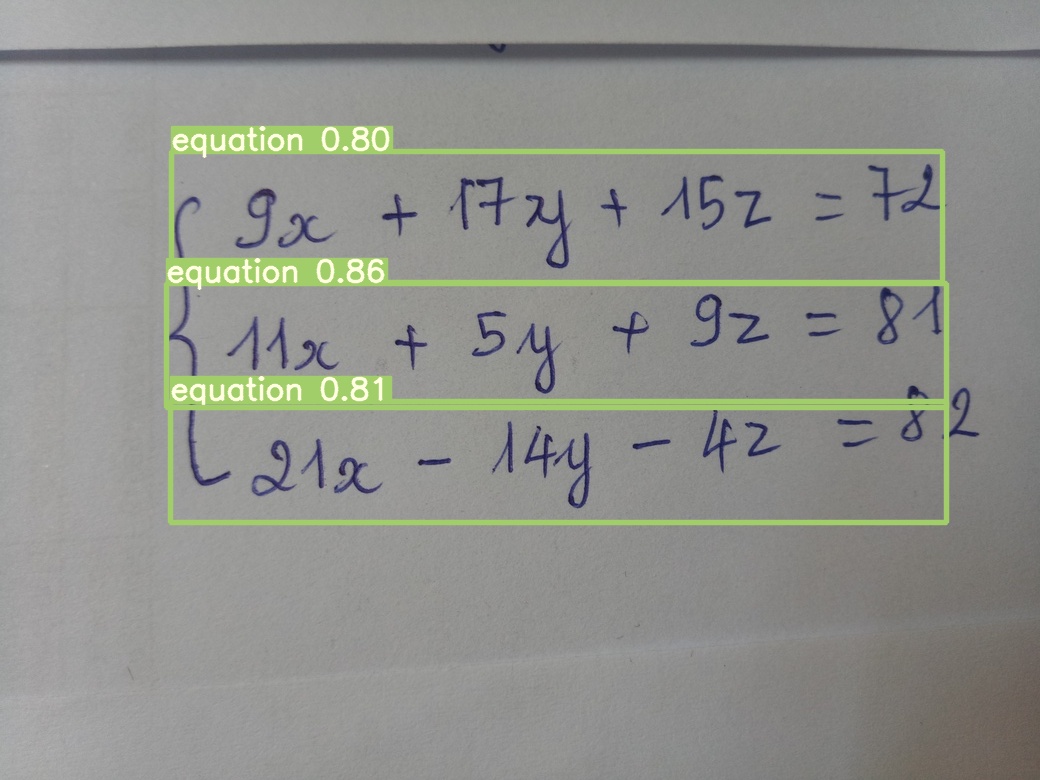 equation 0.80
9x + 17y + 15z = 72
equation 0.86
11x + 5y + 9z = 81
equation 0.81
21x - 14y - 4z = 82